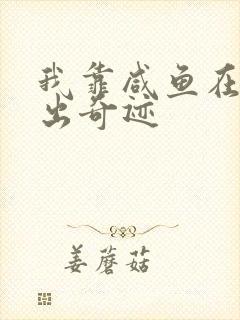 我靠咸鱼在
出奇迹
姜蘑菇